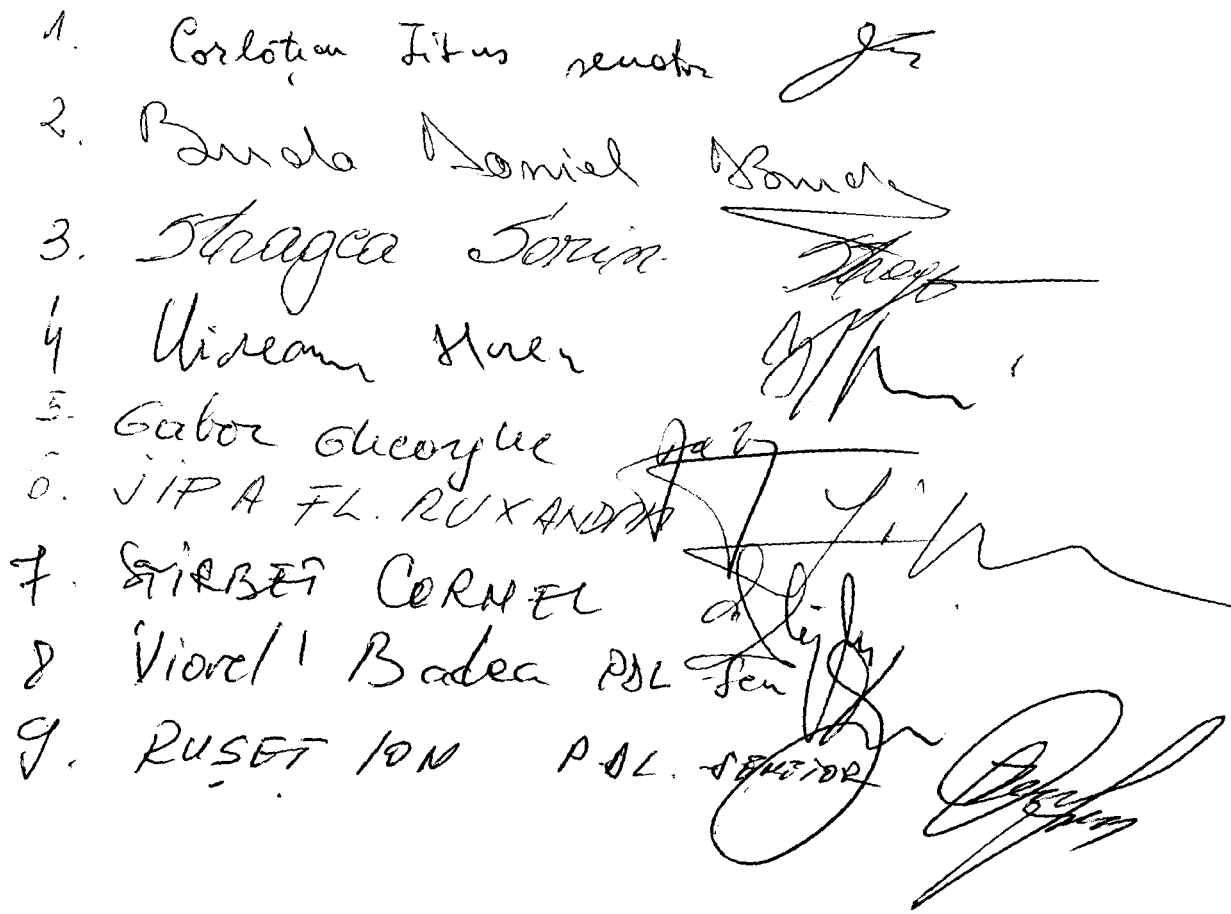 1. Corlățean Titus senator
2. Buda Daniel Buda
3. Stragea Sorin
4 Uioreanu Horea
5. Gabor Gheorghe Gab
6. JIPA FL. RUXANDRA
7. ȘTIRBEȚ CORNEL
8 Viorel Badea PDL Sen
9. RUȘEȚ ION PDL. SENATOR